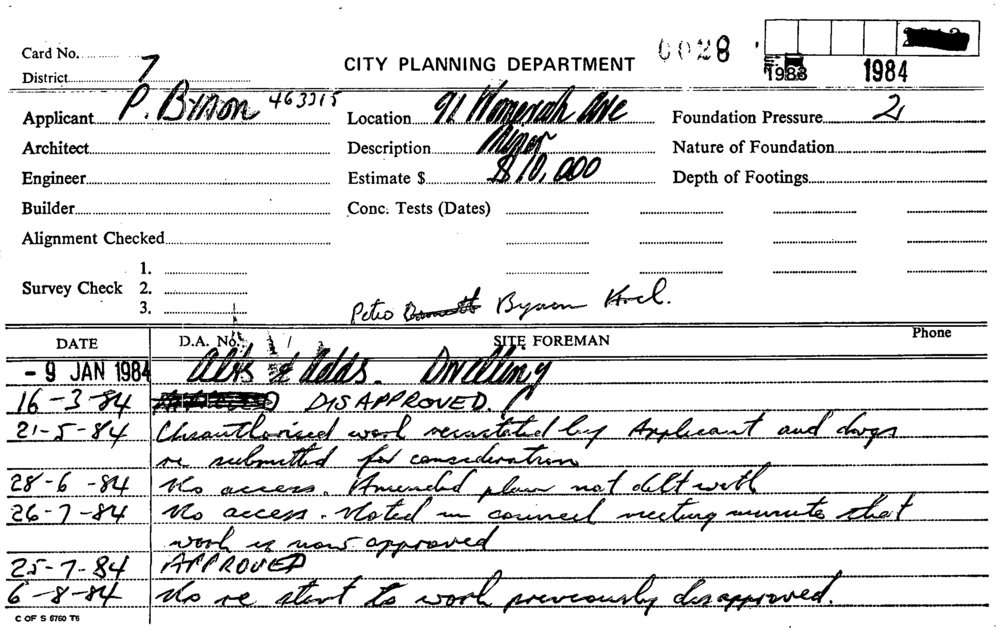 Card No. 0028
District 7 CITY PLANNING DEPARTMENT 1983 1984
Applicant P. Byson 463315 Location 91 Womerah Ave Foundation Pressure 2
Architect Description Minor Nature of Foundation
Engineer Estimate $ $10,000 Depth of Footings
Builder Conc. Tests (Dates)
Alignment Checked
1.
Survey Check 2.
3. Peter
DATE D.A. No. / SITE FOREMAN Phone
- 9 JAN 1984 Alts & Adds. Dwelling
16-3-84 DISAPPROVED.
21-5-84 Unauthorised work reinstated by Applicant and dwgs
re submitted for consideration
28-6-84 No access. Amended plans not delt with
26-7-84 No access. Noted in council meeting minutes that
work is now approved
25-7-84 APPROVED
6-8-84 No re start to work previously disapproved.
C OF S 5760 T6